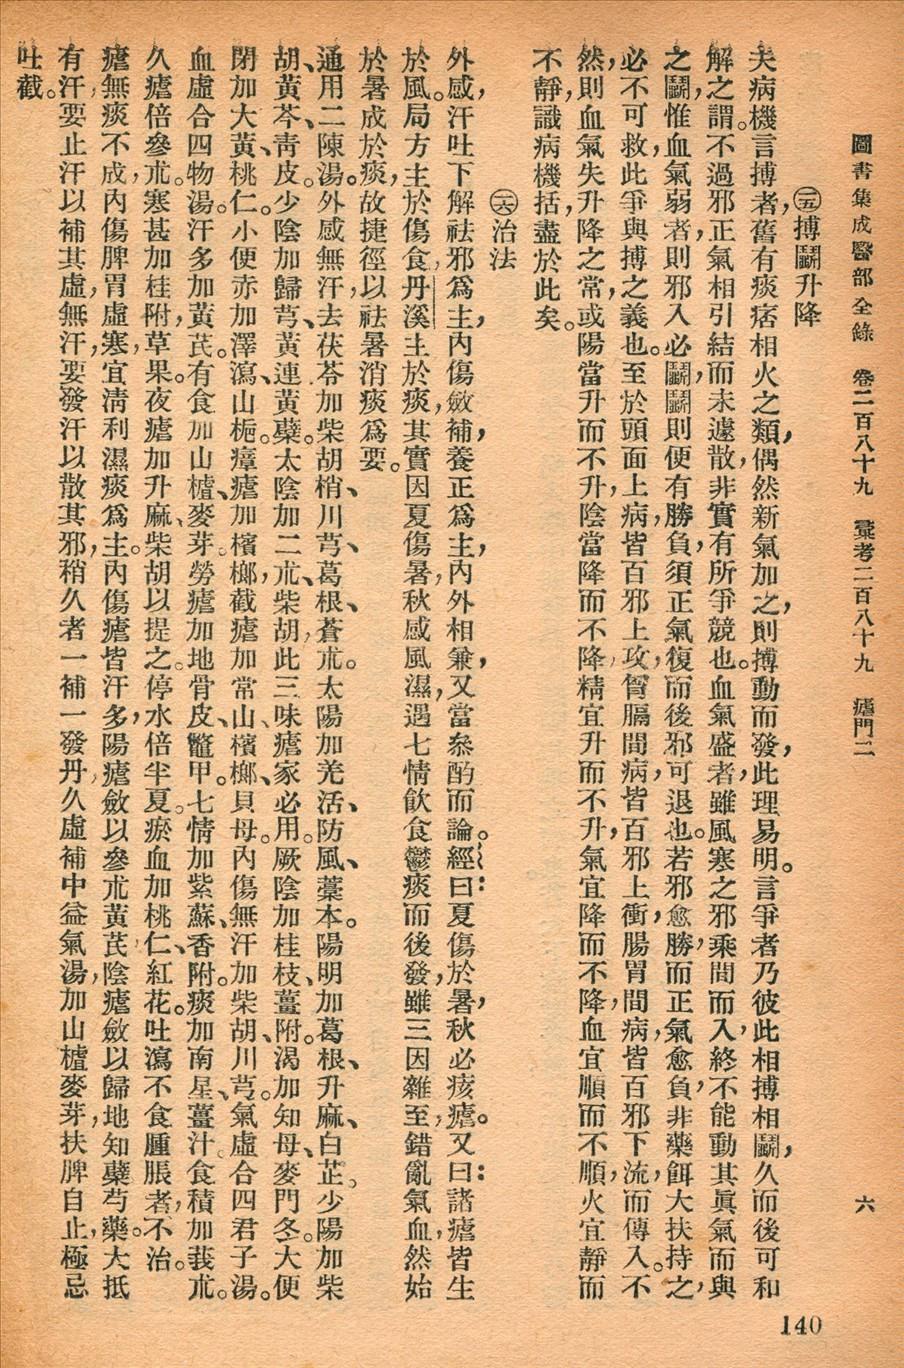 圖書集成醫部全錄　卷二百八十九　彙考二百八十九　瘧門二　六
㊄搏鬭升降
夫病機言搏者，舊有痰痞相火之類，偶然新氣加之，則搏動而發，此理易明。言爭者乃彼此相搏相鬭，久而後可和
解之謂。不過邪正氣相引結而未遽散，非實有所爭競也。血氣盛者，雖風寒之邪乘間而入，終不能動其眞氣而與
之鬭，惟血氣弱者，則邪入必鬭，鬭則便有勝負，須正氣復而後邪可退也。若邪愈勝，而正氣愈負，非藥餌大扶持之，
必不可救，此爭與搏之義也。至於頭面上病，皆百邪上攻，胷膈間病，皆百邪上衝，腸胃間病，皆百邪下流，而傳入。不
然，則血氣失升降之常，或陽當升而不升，陰當降而不降，精宜升而不升，氣宜降而不降，血宜順而不順，火宜靜而
不靜，識病機括，盡於此矣。
㊅治法
外感，汗吐下解祛邪爲主，內傷斂補，養正爲主，內外相兼，又當叅酌而論。經曰：夏傷於暑，秋必痎瘧。又曰：諸瘧皆生
於風。局方主於傷食，丹溪主於痰，其實因夏傷暑，秋感風濕，遇七情飮食鬱痰而後發，雖三因雜至，錯亂氣血，然始
於暑成於痰，故捷徑以祛暑消痰爲要。
通用二陳湯。外感無汗，去茯苓加柴胡梢、川芎、葛根、蒼朮。太陽加羌活、防風、藁本。陽明加葛根、升麻、白芷。少陽加柴
胡、黃芩、靑皮。少陰加歸芎、黃連黃蘗。太陰加二朮、柴胡，此三味瘧家必用。厥陰加桂枝、薑附。渴加知母、麥門冬。大便
閉加大黃、桃仁。小便赤加澤瀉、山梔。瘴瘧加檳榔，截瘧加常山、檳榔、貝母。內傷無汗加柴胡、川芎。氣虛合四君子湯。
血虛合四物湯。汗多加黃芪。有食加山樝、麥芽。勞瘧加地骨皮、鼈甲。七情加紫蘇、香附。痰加南星、薑汁。食積加莪朮。
久瘧倍參朮。寒甚加桂附，草果。夜瘧加升麻、柴胡以提之。停水倍半夏。瘀血加桃仁、紅花。吐瀉不食腫脹者，不治。
瘧無痰不成，內傷脾胃虛寒，宜淸利濕痰爲主。內傷瘧皆汗多，陽瘧斂以參朮黃芪，陰瘧斂以歸地知蘗芍藥。大抵
有汗，要止汗以補其虛，無汗，要發汗以散其邪，稍久者一補一發丹，久虛補中益氣湯，加山樝麥芽，扶脾自止，極忌
吐截。
140